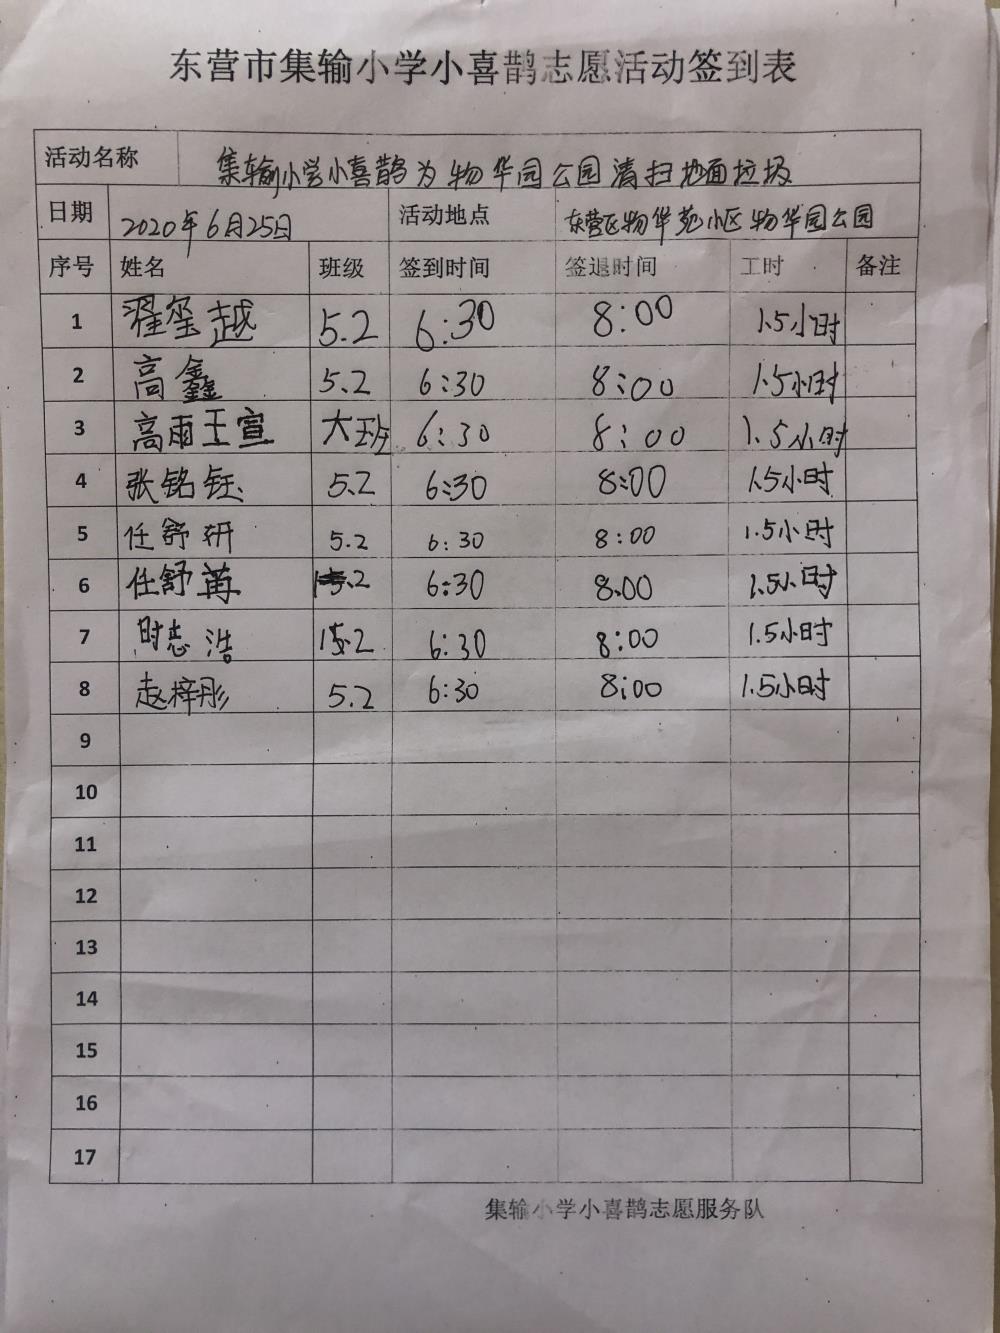 东营市集输小学小喜鹊志愿活动签到表
活动名称 集输小学小喜鹊为物华园公园清扫地面垃圾
日期 2020年6月25日 活动地点 东营区物华苑小区物华园公园
序号 姓名 班级 签到时间 签退时间 工时 备注
1 翟玺越 5.2 6:30 8:00 1.5小时
2 高鑫 5.2 6:30 8:00 1.5小时
3 高雨王宣 大班 6:30 8:00 1.5小时
4 张铭钰 5.2 6:30 8:00 1.5小时
5 任舒研 5.2 6:30 8:00 1.5小时
6 任舒苒 5.2 6:30 8.00 1.5小时
7 时志浩 5.2 6:30 8:00 1.5小时
8 赵梓彤 5.2 6:30 8:00 1.5小时
9
10
11
12
13
14
15
16
17
集输小学小喜鹊志愿服务队